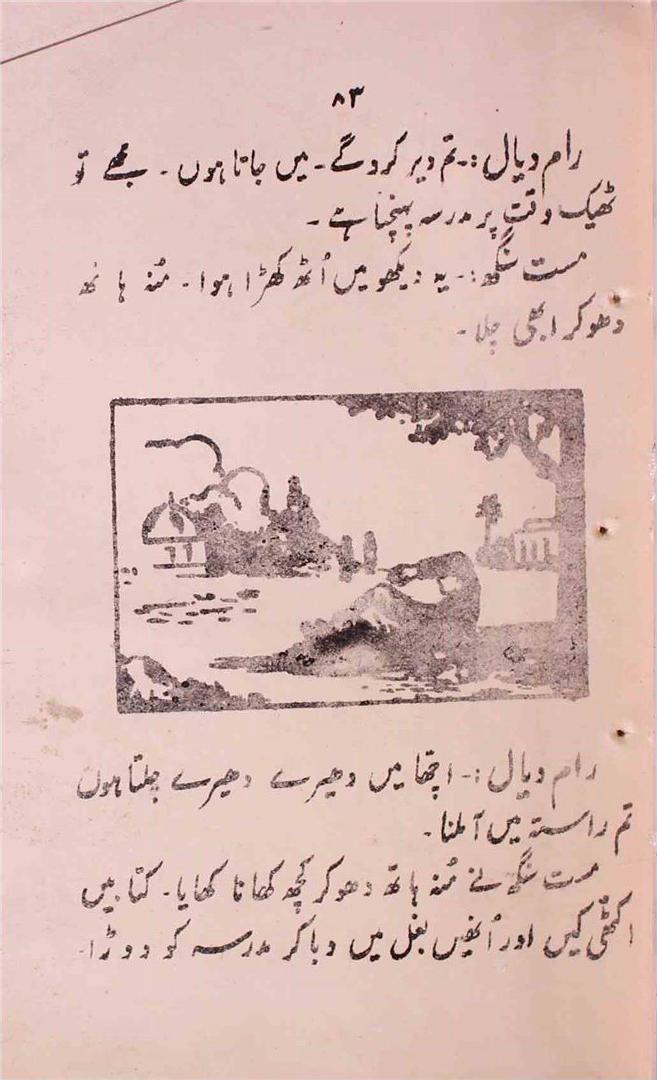 ۸۳
رام دیال :۔ تم دیر کرو گے۔ میں جاتا ہوں۔ مجھے تو
ٹھیک وقت پر مدرسہ پہنچنا ہے۔
مست سنگھ :۔ یہ دیکھو میں اُٹھ کھڑا ہوا۔ مُنہ ہاتھ
دھو کر ابھی چلا۔
رام دیال :۔ اچھا میں دھیرے دھیرے چلتا ہوں
تم راستہ میں آ ملنا۔
مست سنگھ نے مُنہ ہاتھ دھو کر کچھ کھانا کھایا۔ کتابیں
اکٹھی کیں اور اُنھیں بغل میں دبا کر مدرسہ کو دوڑا۔